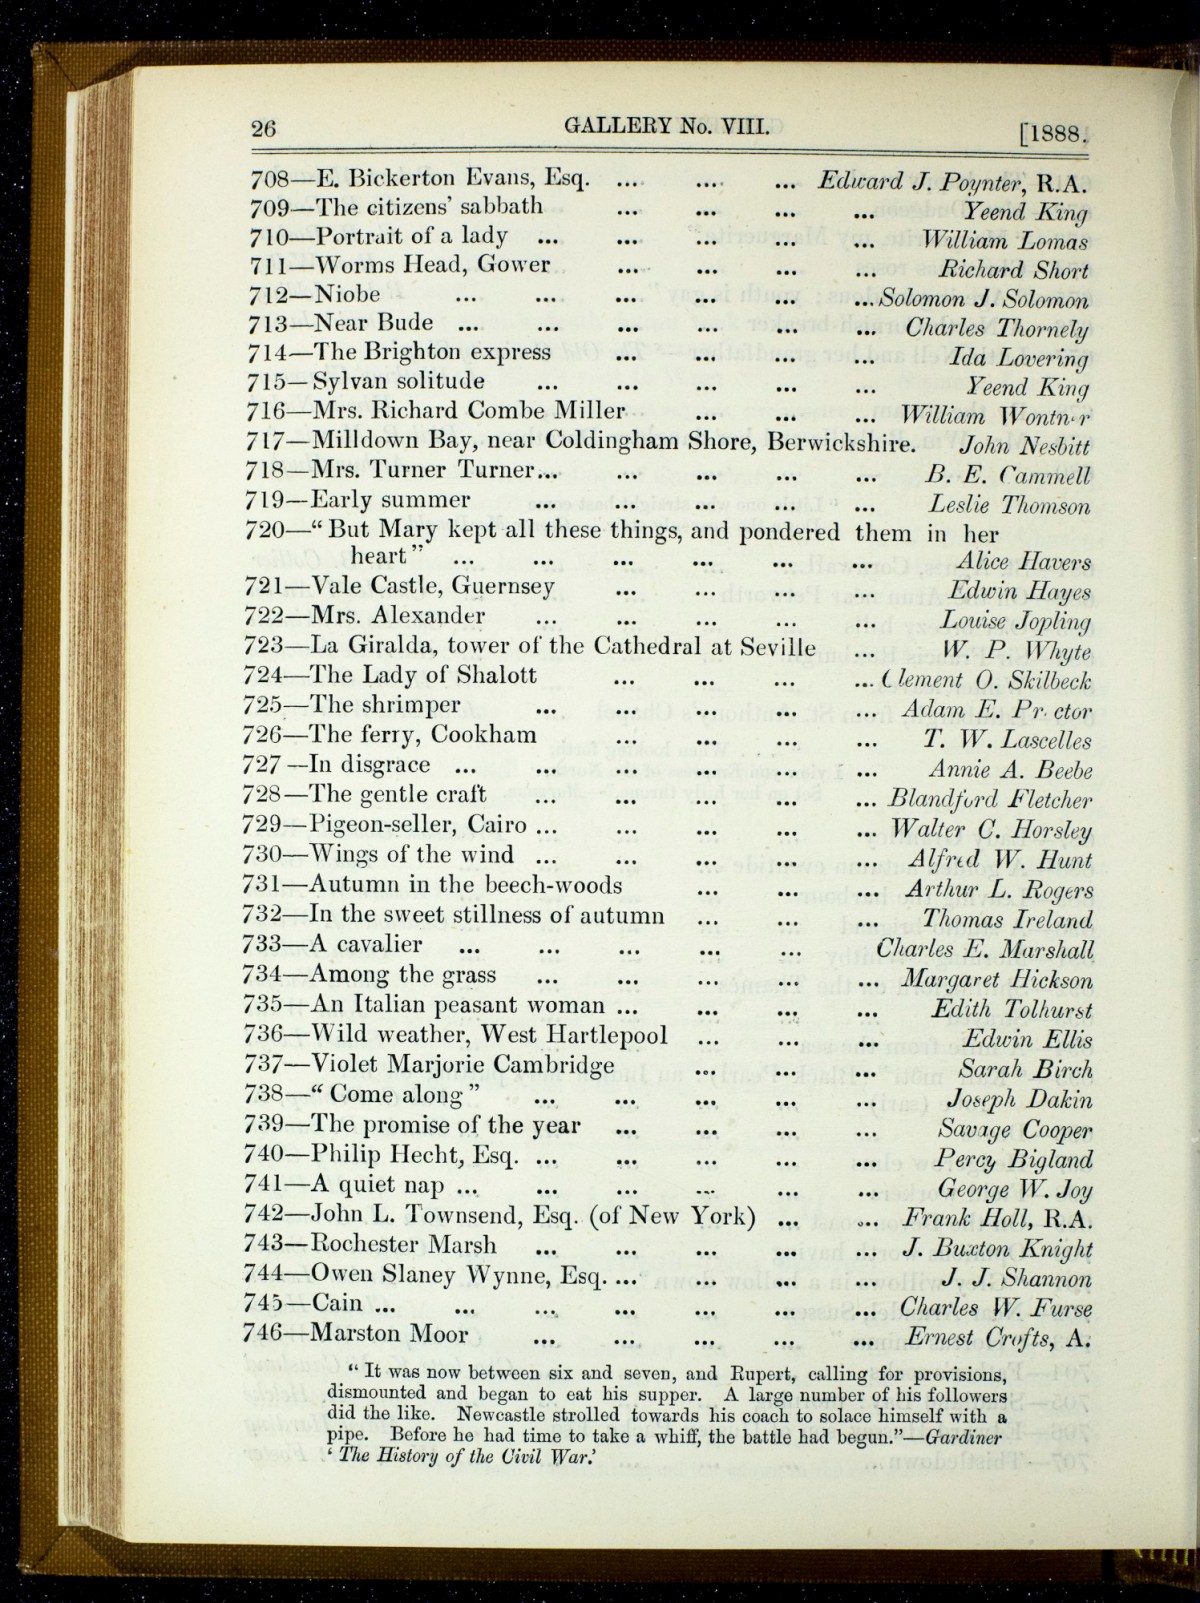 26 GALLERY No. VIII. [1888.
708—E. Bickerton Evans, Esq. ... ... ... Edward J. Poynter, R.A.
709—The citizens' sabbath ... ... ... ... Yeend King
710—Portrait of a lady ... ... ... ... ... William Lomas
711—Worms Head, Gower ... ... ... ... Richard Short
712—Niobe ... ... ... ... ... ... Solomon J. Solomon
713—Near Bude ... ... ... ... ... ... Charles Thornely
714—The Brighton express ... ... ... ... Ida Lovering
715—Sylvan solitude ... ... ... ... ... Yeend King
716—Mrs. Richard Combe Miller ... ... ... William Wontner
717—Milldown Bay, near Coldingham Shore, Berwickshire. John Nesbitt
718—Mrs. Turner Turner... ... ... ... ... B. E. Cammell
719—Early summer ... ... ... ... ... Leslie Thomson
720—“But Mary kept all these things, and pondered them in her
heart” ... ... ... ... ... ... Alice Havers
721—Vale Castle, Guernsey ... ... ... ... Edwin Hayes
722—Mrs. Alexander ... ... ... ... ... Louise Jopling
723—La Giralda, tower of the Cathedral at Seville ... W. P. Whyte
724—The Lady of Shalott ... ... ... ... Clement O. Skilbeck
725—The shrimper ... ... ... ... ... Adam E. Proctor
726—The ferry, Cookham ... ... ... ... T. W. Lascelles
727—In disgrace ... ... ... ... ... ... Annie A. Beebe
728—The gentle craft ... ... ... ... ... Blandford Fletcher
729—Pigeon-seller, Cairo ... ... ... ... ... Walter C. Horsley
730—Wings of the wind ... ... ... ... ... Alfred W. Hunt
731—Autumn in the beech-woods ... ... ... Arthur L. Rogers
732—In the sweet stillness of autumn ... ... ... Thomas Ireland
733—A cavalier ... ... ... ... ... Charles E. Marshall
734—Among the grass ... ... ... ... ... Margaret Hickson
735—An Italian peasant woman ... ... ... ... Edith Tolhurst
736—Wild weather, West Hartlepool ... ... ... Edwin Ellis
737—Violet Marjorie Cambridge ... ... ... Sarah Birch
738—“Come along” ... ... ... ... ... Joseph Dakin
739—The promise of the year ... ... ... ... Savage Cooper
740—Philip Hecht, Esq. ... ... ... ... ... Percy Bigland
741—A quiet nap ... ... ... ... ... ... George W. Joy
742—John L. Townsend, Esq. (of New York) ... ... Frank Holl, R.A.
743—Rochester Marsh ... ... ... ... ... J. Buxton Knight
744—Owen Slaney Wynne, Esq. ... ... ... ... J. J. Shannon
745—Cain ... ... ... ... ... ... ... Charles W. Furse
746—Marston Moor ... ... ... ... ... Ernest Crofts, A.
“It was now between six and seven, and Rupert, calling for provisions,
dismounted and began to eat his supper. A large number of his followers
did the like. Newcastle strolled towards his coach to solace himself with a
pipe. Before he had time to take a whiff, the battle had begun.”—Gardiner
‘The History of the Civil War.’